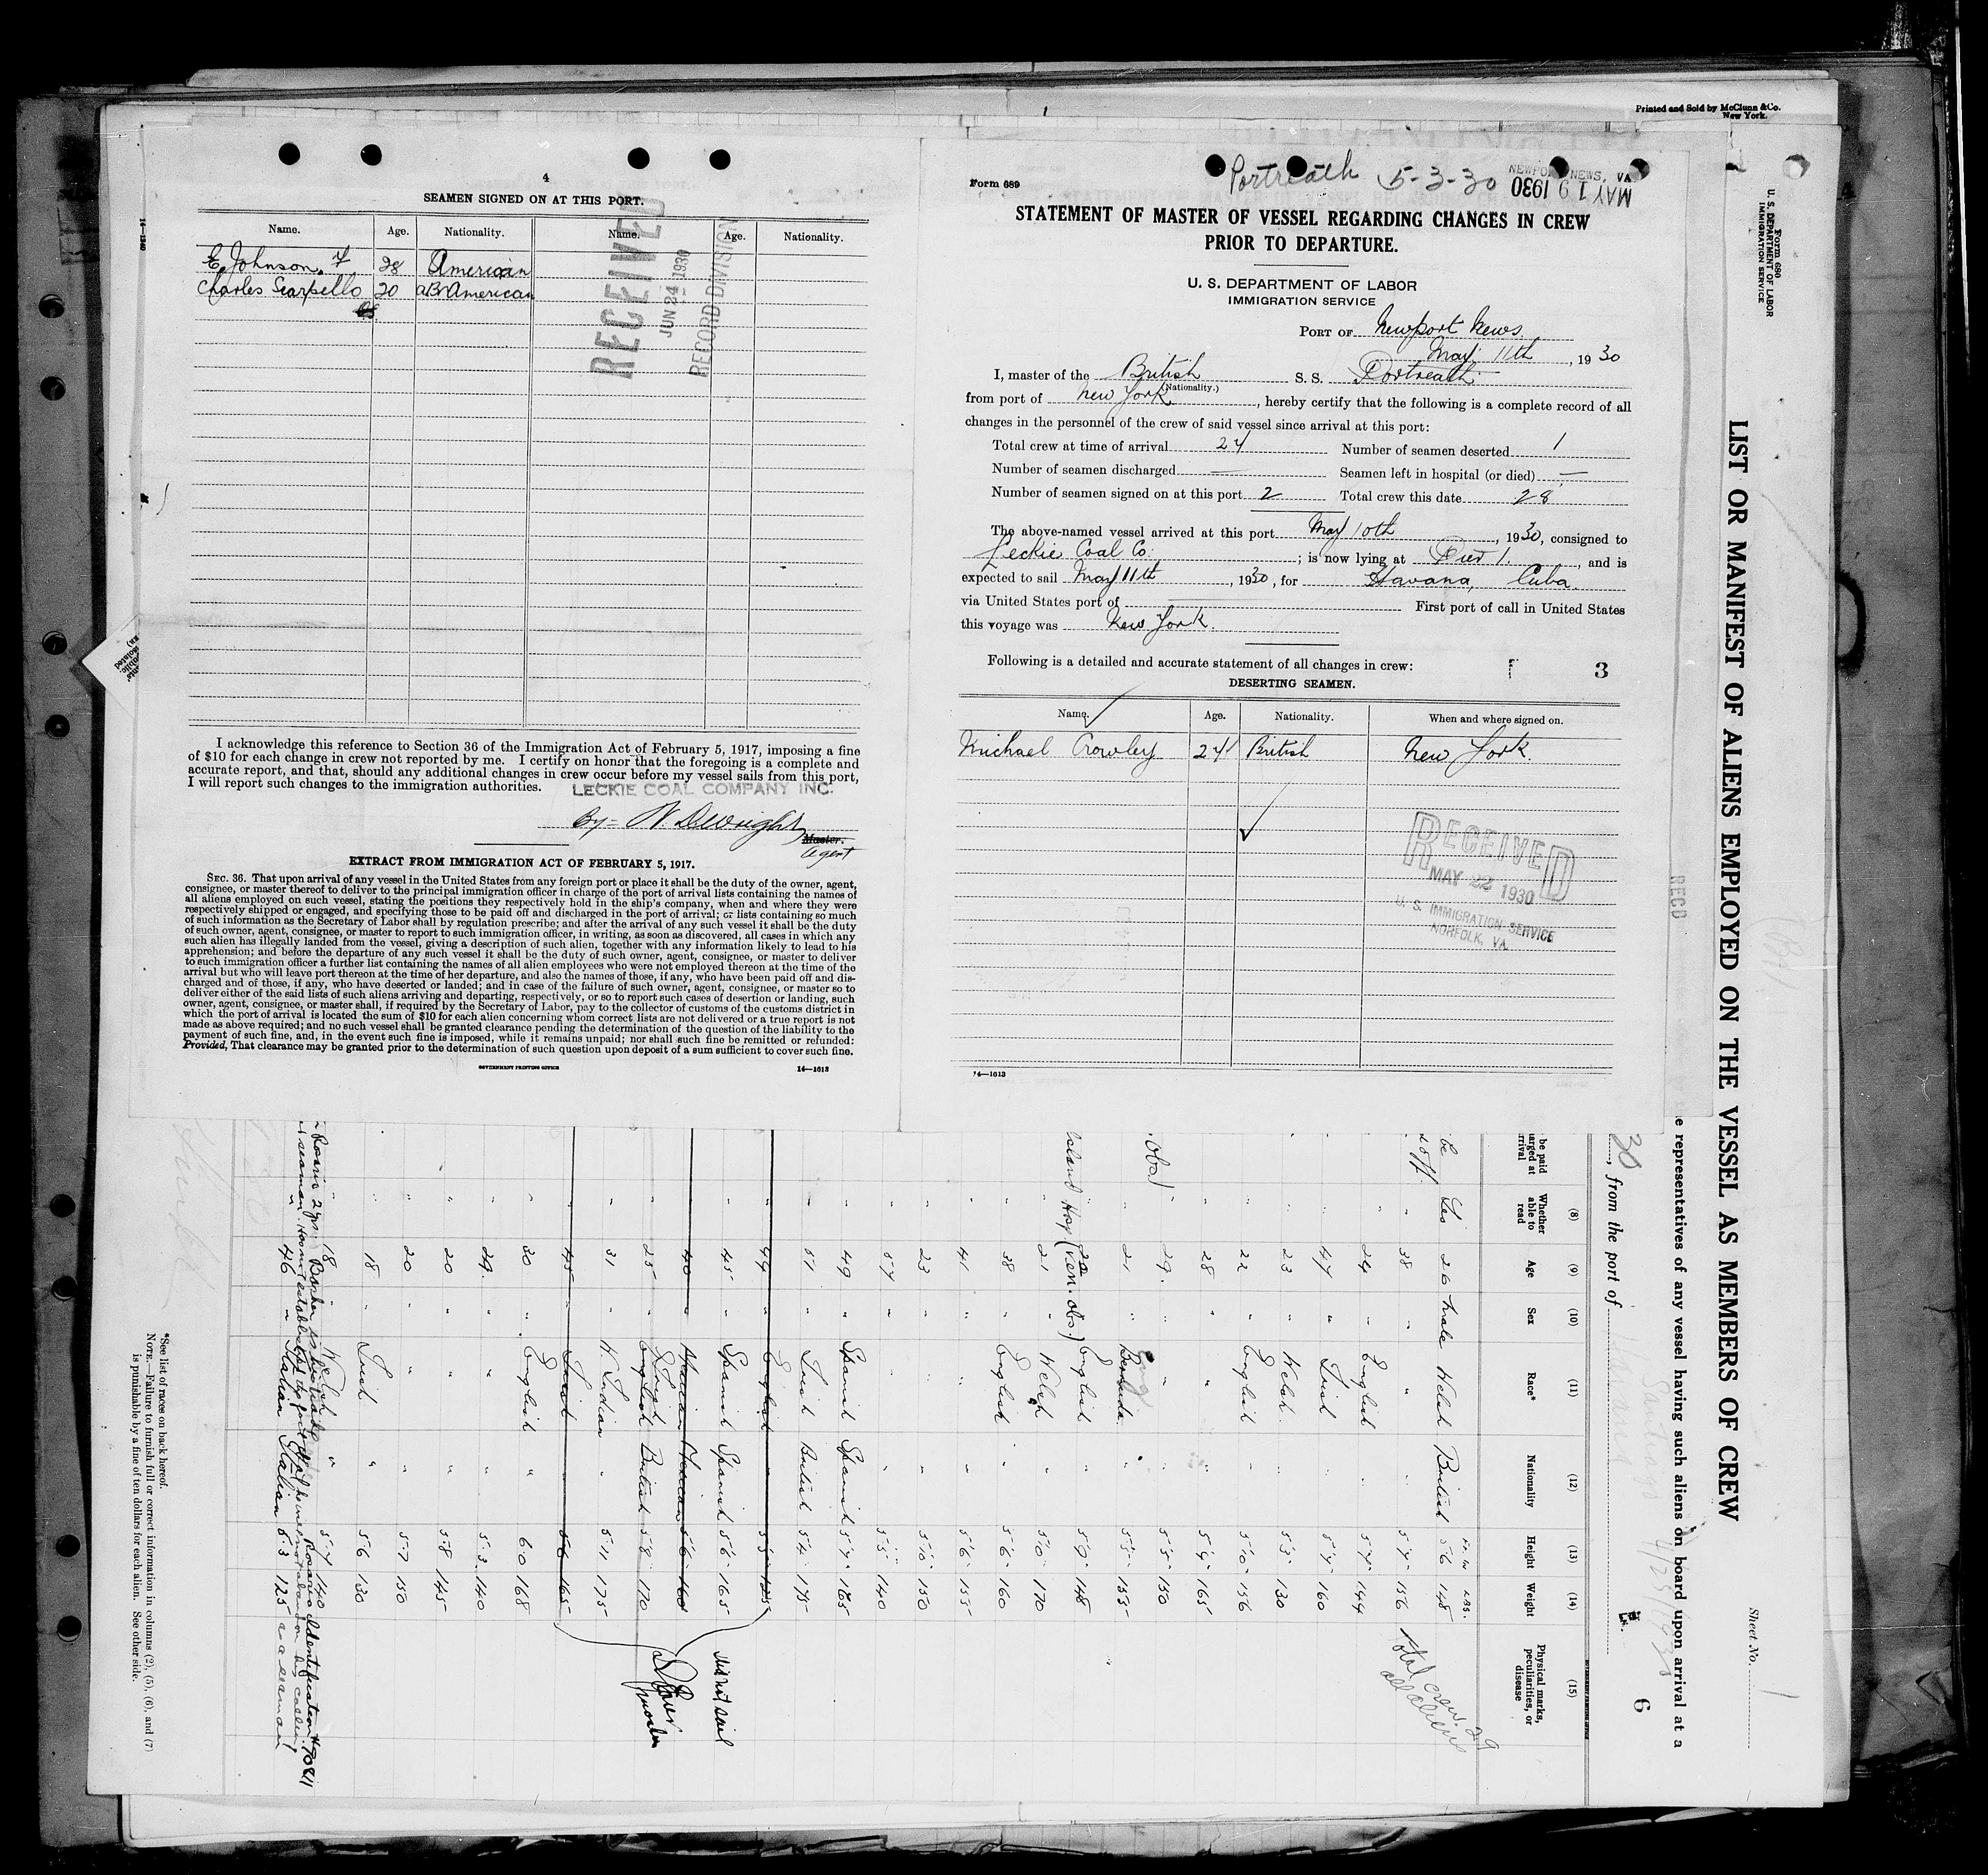 Printed and Sold by McClunn & Co.
New York.
4
SEAMEN SIGNED ON AT THIS PORT.
Name. Age. Nationality. Name. Age. Nationality.
E. Johnson, 28 American
Charles Scarpello 20 American
RECEIVED
JUN 24 1930
RECORD DIVISION
I acknowledge this reference to Section 36 of the Immigration Act of February 5, 1917, imposing a fine
of $10 for each change in crew not reported by me. I certify on honor that the foregoing is a complete and
accurate report, and that, should any additional changes in crew occur before my vessel sails from this port,
I will report such changes to the immigration authorities.
LECKIE COAL COMPANY INC.
By= W. Dwight
Master.
agent
EXTRACT FROM IMMIGRATION ACT OF FEBRUARY 5, 1917.
SEC. 36. That upon arrival of any vessel in the United States from any foreign port or place it shall be the duty of the owner, agent,
consignee, or master thereof to deliver to the principal immigration officer in charge of the port of arrival lists containing the names of
all aliens employed on such vessel, stating the positions they respectively hold in the ship's company, when and where they were
respectively shipped or engaged, and specifying those to be paid off and discharged in the port of arrival; or lists containing so much
of such information as the Secretary of Labor shall by regulation prescribe; and after the arrival of any such vessel it shall be the duty
of such owner, agent, consignee, or master to report to such immigration officer, in writing, as soon as discovered, all cases in which any
such alien has illegally landed from the vessel, giving a description of such alien, together with any information likely to lead to his
apprehension; and before the departure of any such vessel it shall be the duty of such owner, agent, consignee, or master to deliver
to such immigration officer a further list containing the names of all alien employees who were not employed thereon at the time of the
arrival but who will leave port thereon at the time of her departure, and also the names of those, if any, who have been paid off and dis-
charged and of those, if any, who have deserted or landed; and in case of the failure of such owner, agent, consignee, or master so to
deliver either of the said lists of such aliens arriving and departing, respectively, or so to report such cases of desertion or landing, such
owner, agent, consignee, or master shall, if required by the Secretary of Labor, pay to the collector of customs of the customs district in
which the port of arrival is located the sum of $10 for each alien concerning whom correct lists are not delivered or a true report is not
made as above required; and no such vessel shall be granted clearance pending the determination of the question of the liability to the
payment of such fine, and, in the event such fine is imposed, while it remains unpaid; nor shall such fine be remitted or refunded:
Provided, That clearance may be granted prior to the determination of such question upon deposit of a sum sufficient to cover such fine.
GOVERNMENT PRINTING OFFICE 14—1613
Form 689
Portreath 5-3-30
NEWPORT NEWS, VA.
MAY 19 1930
STATEMENT OF MASTER OF VESSEL REGARDING CHANGES IN CREW
PRIOR TO DEPARTURE.
U. S. DEPARTMENT OF LABOR
IMMIGRATION SERVICE
PORT OF Newport News
May 11th, 1930
I, master of the British S. S. Portreath
(Nationality.)
from port of New York, hereby certify that the following is a complete record of all
changes in the personnel of the crew of said vessel since arrival at this port:
Total crew at time of arrival 27 Number of seamen deserted 1
Number of seamen discharged — Seamen left in hospital (or died) —
Number of seamen signed on at this port 2 Total crew this date 28
The above-named vessel arrived at this port May 10th, 1930, consigned to
Leckie Coal Co.; is now lying at Pier 1, and is
expected to sail May 11th, 1930, for Havana, Cuba
via United States port of — First port of call in United States
this voyage was New York.
Following is a detailed and accurate statement of all changes in crew:
3
DESERTING SEAMEN.
Name. Age. Nationality. When and where signed on.
Michael Crowley 24 British New York.
RECEIVED
MAY 22 1930
U. S. IMMIGRATION SERVICE
NORFOLK, VA.
14—1613
RECD
Form 680
U. S. DEPARTMENT OF LABOR
IMMIGRATION SERVICE
LIST OR MANIFEST OF ALIENS EMPLOYED ON THE VESSEL AS MEMBERS OF CREW
Sheet No. 1
e representatives of any vessel having such aliens on board upon arrival at a
6
30, from the port of Havana
Santiago
(8) (9) (10) (11) (12) (13) (14) (15)
be paid
arged at
rrival
Whether able to read Age Sex Race* Nationality Height Weight Physical marks, peculiarities, or disease
Yes 26 Male Welsh British 5'6 148
38 " " " 5'7 156
24 " English " 5'7 144
47 " Irish " 5'7 160
23 " Welsh " 5'3 130
22 " English " 5'10 156
28 " " " 5'9 165
29 " " " 5'5 150
21 " Bermuda " 5'5 135
English " 5'9 148
21 " Welsh " 5'0 170
38 " English " 5'6 160
41 " " " 5'6 135
23 " " " 5'10 150
57 " " " 5'5 140
49 " Spanish Spanish 5'7 185
51 " Irish British 5'4 175
49 " English " 5'5 125
45 " Spanish Spanish 5'6 165
40 " 5'6 160
25 " English British 5'8 170
31 " W. Indian " 5'11 175
45 " Irish " 5'6 165
30 " English " 6'0 168
29 " " " 5'3 140
20 " " " 5'8 145
20 " " " 5'7 150
18 " Irish " 5'6 130
18 " Welsh " 5'7 140
46 " Italian Italian 5'3 125
Total crew 29
all aliens
did not sail
*See list of races on back hereof.
NOTE.—Failure to furnish full or correct information in columns (2), (5), (6), and (7)
is punishable by a fine of ten dollars for each alien. See other side.